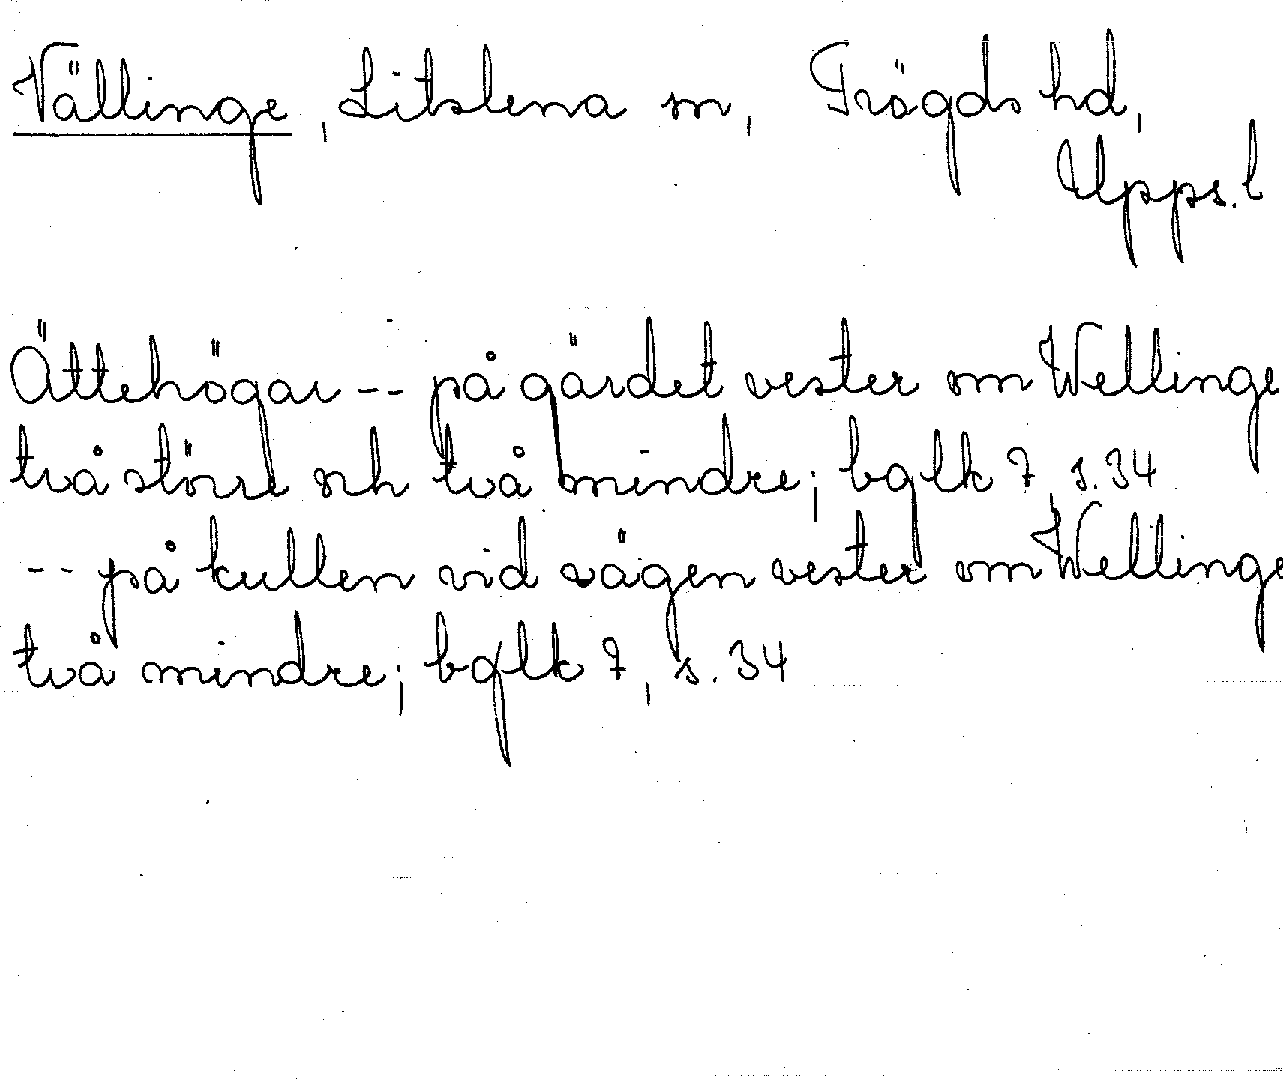 Vällinge, Litslena sn, Trögds hd,
Upps. l
Ättehögar -- på gärdet vester om Wellinge
två större och två mindre; bglk 7, s. 34
-- på kullen vid vägen vester om Wellinge
två mindre; bglk 7, s. 34